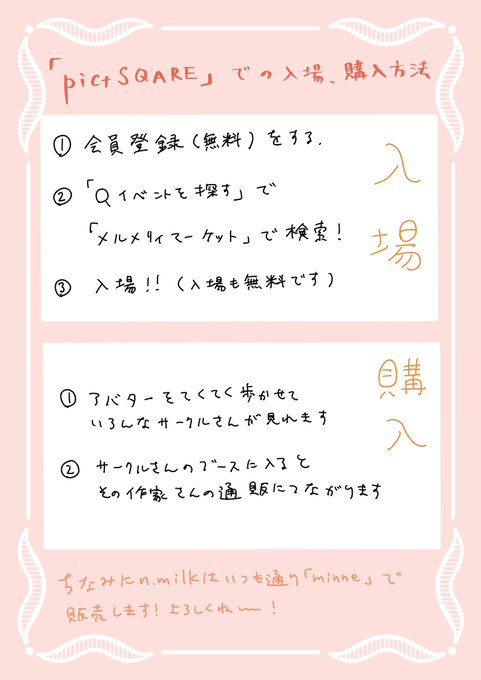 「pictSQARE」での入場、購入方法
入場
① 会員登録(無料)をする.
② 「Qイベントを探す」で
「メルメリィマーケット」で検索!
③ 入場!!(入場も無料です)
購入
① アバターをてくてく歩かせて
いろんなサークルさんが見れます
② サークルさんのブースに入ると
その作家さんの通販につながります
ちなみにn.milkはいつも通り「minne」で
販売します!よろしくね〜!